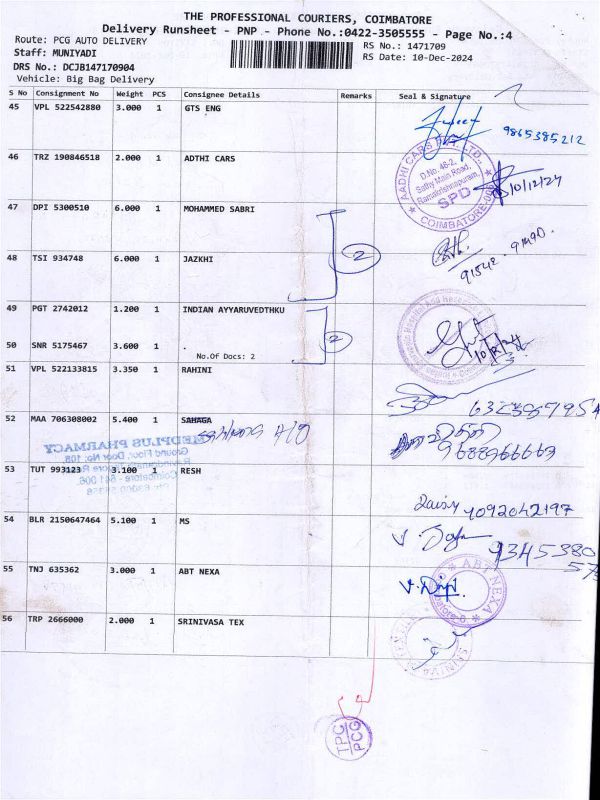 THE PROFESSIONAL COURIERS, COIMBATORE
Delivery Runsheet - PNP - Phone No.:0422-3505555 - Page No.:4
Route: PCG AUTO DELIVERY
RS No.: 1471709
Staff: MUNIYADI
RS Date: 10-Dec-2024
DRS No.: DCJB147170904
Vehicle: Big Bag Delivery
S No Consignment No Weight PCS Consignee Details Remarks Seal & Signature
45 VPL 522542880 3.000 1 GTS ENG
9865385212
46 TRZ 190846518 2.000 1 ADTHI CARS
AADHI CARS PVT. LTD.,
D.No. 46-2,
Sathy Main Road,
Ramakrishnapuram,
SPD
COIMBATORE
10/12/24
47 DPI 5300510 6.000 1 MOHAMMED SABRI
2
48 TSI 934748 6.000 1 JAZKHI
49 PGT 2742012 1.200 1 INDIAN AYYARUVEDTHKU
2
50 SNR 5175467 3.600 1 .
No.Of Docs: 2
51 VPL 522133815 3.350 1 RAHINI
52 MAA 706308002 5.400 1 SAHAGA
MEDPLUS PHARMACY
Ground Floor, Door No: 108,
Coimbatore - 641 006.
53 TUT 993123 3.100 1 RESH
Daisy 4092042197
54 BLR 2150647464 5.100 1 MS
9345380
55 TNJ 635362 3.000 1 ABT NEXA
ABT NEXA
56 TRP 2666000 2.000 1 SRINIVASA TEX
TPC
PCG